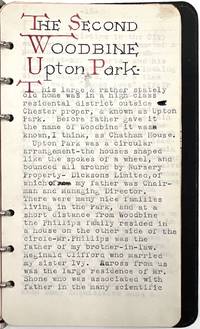 The Second
Woodbine
Upton Park.
This large & rather stately
old home was in a high class
residential district outside
Chester proper, & known as Upton
Park. before father gave it
the name of Woodbine it was
known, I think, as Chatham House.
Upton Park was a circular
arrangement-the houses shaped
like the spokes of a wheel, and
bounded all around by Nursery
Property- Dicksons Limited, of
which my father was Chair-
man and Managing Director.
There were many nice families
living in the Park, and at a
short distance from Woodbine
the Phillips family resided in
a house on the other side of the
circle-Mr.Phillips was the
father of my brother-in-law,
Reginald Clifford who married
my sister Ivy. Across from us
was the large residence of Mr.
Shone who was associated with
father in the many scientific